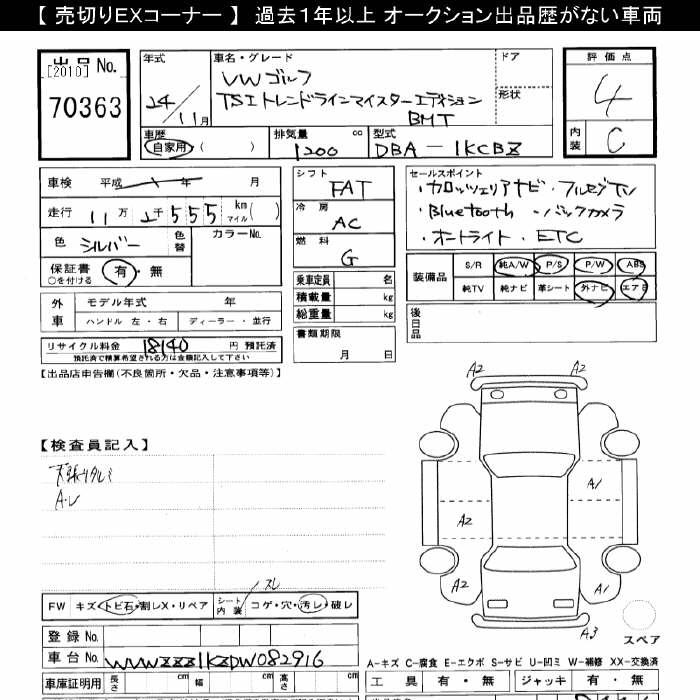 【 売切りEXコーナー 】 過去１年以上 オークション出品歴がない車両
出品 No.
[2010]
70363
年式
24/11月
車名・グレード
VWゴルフ
TSIトレンドラインマイスターエディション
BMT
ドア
形状
評価点
4
内装
C
車歴
自家用 ( )
排気量 cc
1200
型式
DBA-1KCBZ
車検 平成 年 月
走行 11万2千555 km マイル ( )
色 シルバー 色替
カラーNo.
保証書 有・無
○を付ける
外車
モデル年式 年
ハンドル 左・右 ディーラー・並行
リサイクル料金 18140 円 預託済
預託済で精算希望される方は金額記入して下さい
シフト
FAT
冷房
AC
燃料
G
乗車定員 名
積載量 kg
総重量 kg
書類期限
月 日
セールスポイント
・カロッツェリアナビ・フルセグTV
・Bluetooth ・バックカメラ
・オートライト・ETC
装備品
S/R 純A/W P/S P/W ABS
純TV 純ナビ 革シート 外ナビ エアB
後日品
【出品店申告欄(不良箇所・欠品・注意事項等)】
【検査員記入】
天張りタルミ
A・U
スレ
FW キズ・トビ石・割レX・リペア
シート内装 コゲ・穴・汚レ・破レ
A2
A2
A1
A2
A2
A1
A3
スペア
登録 No.
車台 No. WVWZZZ1KZDW082916
車庫証明用 長さ cm 幅 cm 高さ cm
A-キズ C-腐食 E-エクボ S-サビ U-凹ミ W-補修 XX-交換済
工具 有・無 ジャッキ 有・無